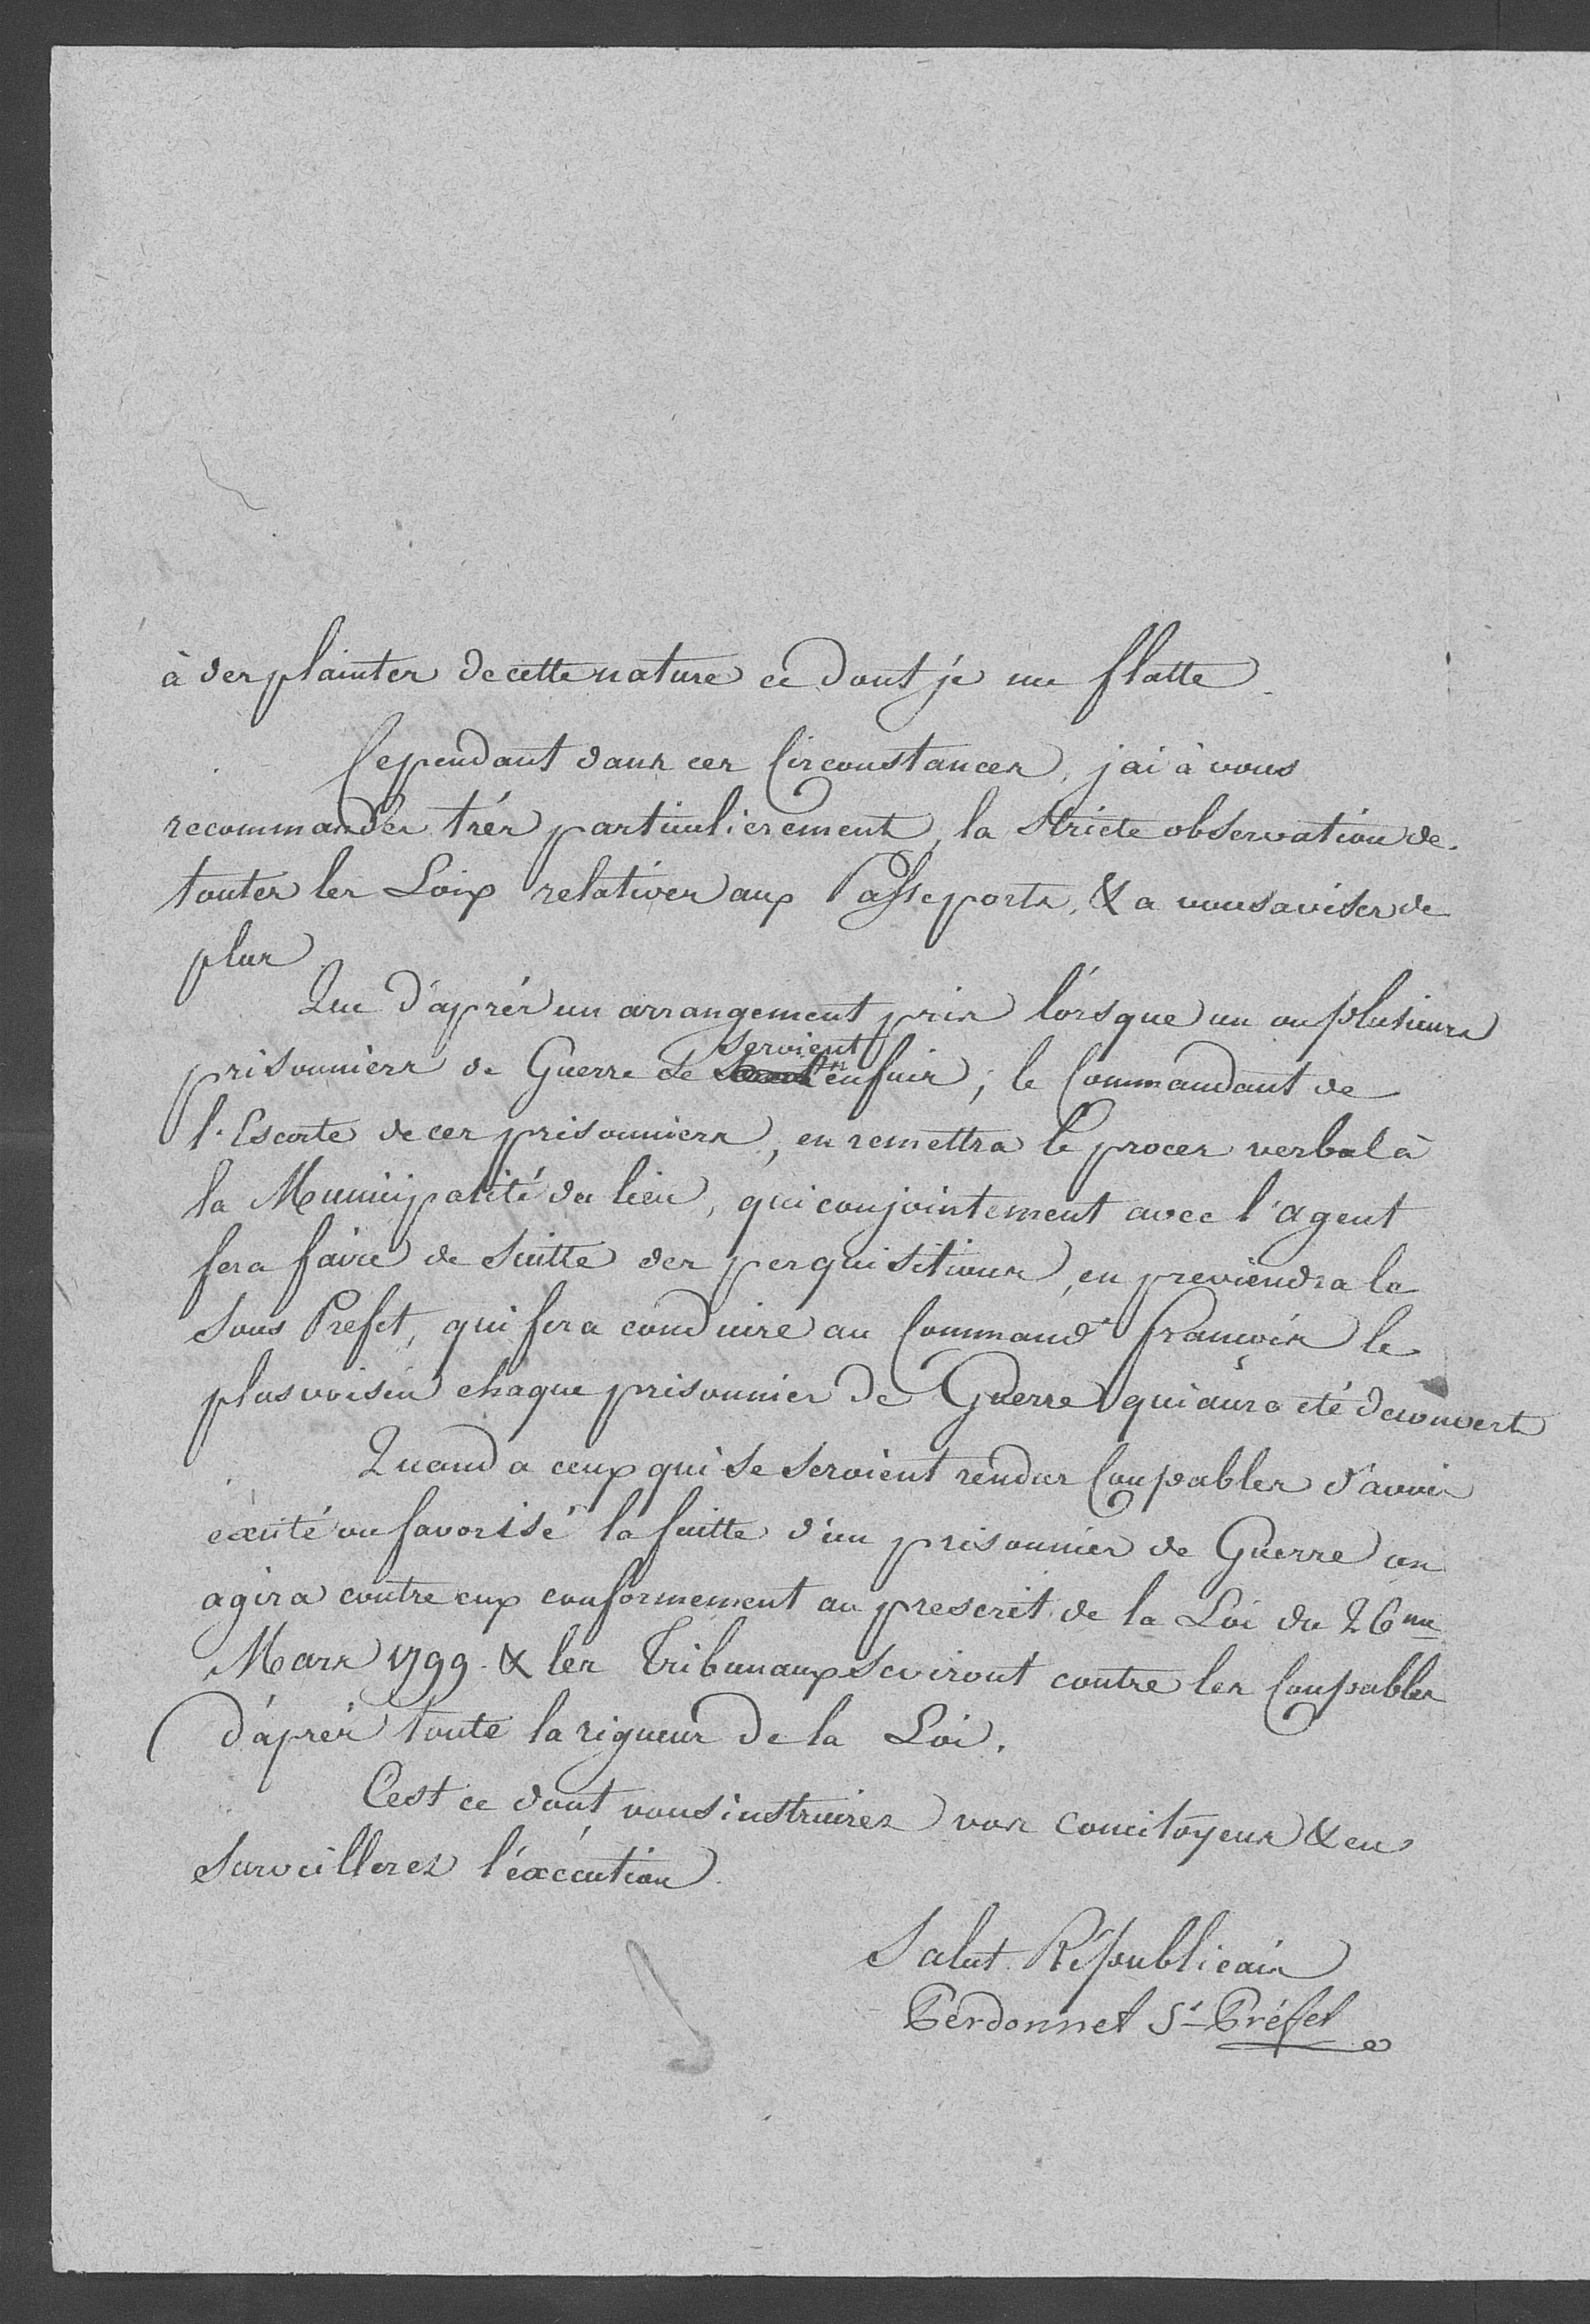 à des plaintes de cette nature ce dont je me flatte.
Cependant dans ces Circonstances, j'ai à vous
recommander très particulierement, la stricte observation de
toutes les Loix relatives aux Passeports, & a vous aviser de
plus
Que d'après un arrangement pris lórsque un ou plusieurs
seroient
prisonniers de Guerre se enfuir; le Commandant de
l'Escorte de ces prisonniers, en remettra le proces verbal à
la Municipalité du lieu, qui conjointement avec l'agent
fera faire de suitte des perquisitions, en previendra le
Sous Prefet, qui fera conduire au Command.t françois le
plus voisin chaque prisonnier de Guerre qui aura eté decouvert
Quand a ceux qui se seroient rendus Coupables d'avoir
excité ou favorisé la fuitte d'un prisonnier de Guerre on
agira contre eux conformement au prescrit de la Loi du 26me
Mars 1799. & les Tribunaux seviront contre les Coupables
d'après toute la rigueur de la Loi.
C'est ce dont vous instruirez vos concitoyens & en
surveillerez l'éxécution.
Salut Républicain
Perdonnet Ss-Préfet